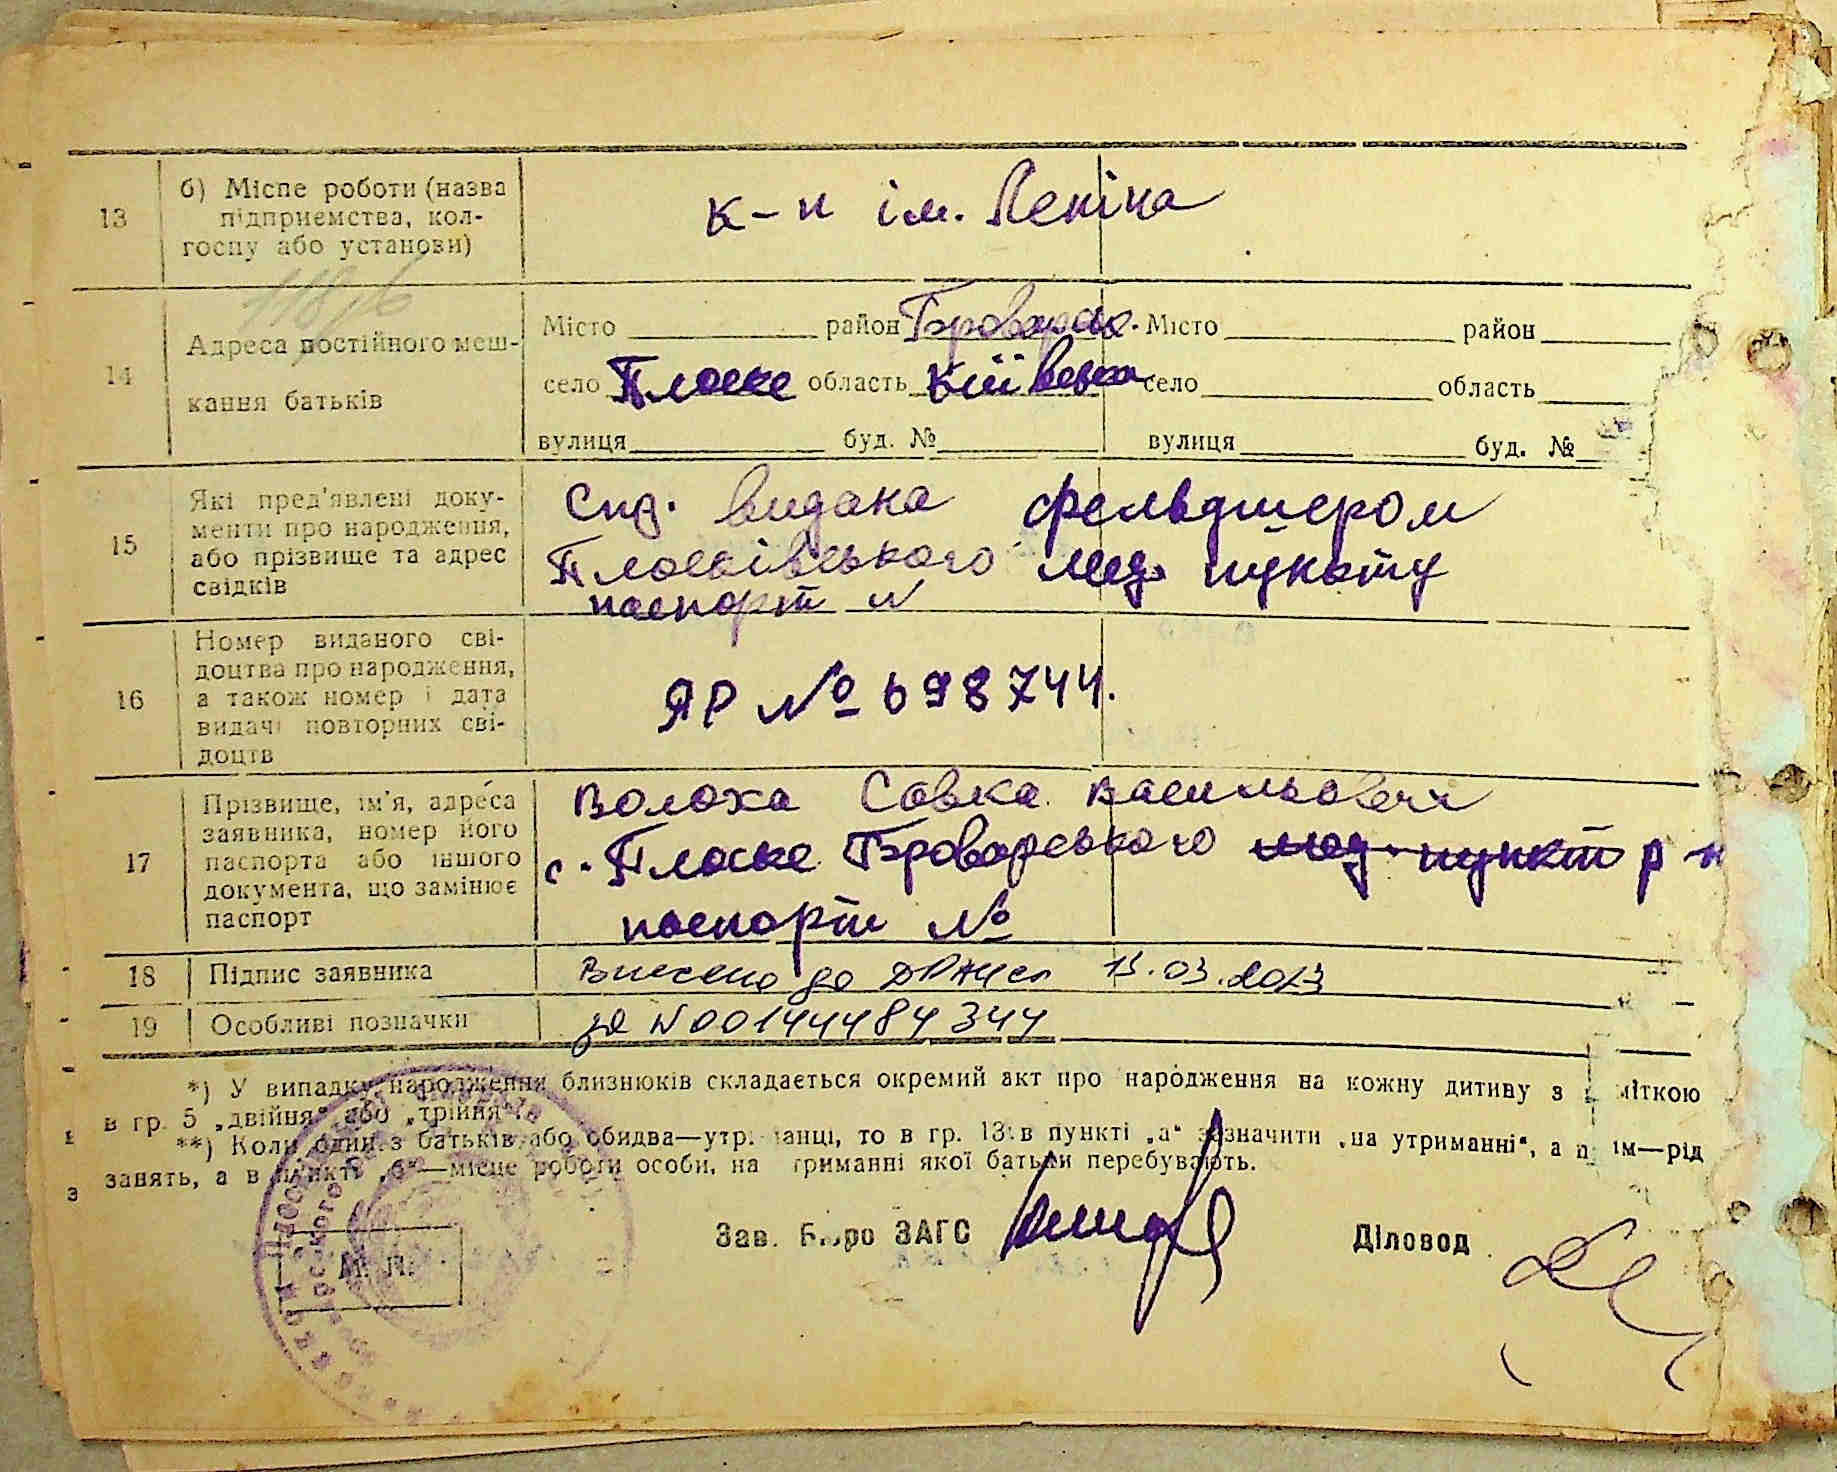 13
б) Місце роботи (назва
підприємства, кол-
госпу або установи)
к-п ім. Леніна
14
Адреса постійного меш-
кання батьків
Місто район Броварськ. Місто район
село Плоске область Київська село область
вулиця буд. № вулиця буд. №
15
Які пред'явлені доку-
менти про народження,
або прізвище та адрес
свідків
Спр. видана фельдшером
Плосківського мед. пункту
паспорт №
16
Номер виданого сві-
доцтва про народження,
а також номер і дата
видачі повторних сві-
доцтв
ЯР № 698744.
17
Прізвище, ім'я, адреса
заявника, номер його
паспорта або іншого
документа, що замінює
паспорт
Волоха Савка Васильович
с. Плоске Броварського мед. пункт р-н
паспорт №
18 Підпис заявника
Внесено до ДРАЦСГ 15.03.2023
19 Особливі позначки
за N00144484344
*) У випадку народження близнюків складається окремий акт про народження на кожну дитину з міткою
в гр. 5 „двійня“ або „трійня“.
**) Коли один з батьків або обидва—утр. манці, то в гр. 13 в пункті „а“ зазначити „на утриманні“, а п. ім—рід
занять, а в пункті „б“—місце роботи особи, на триманні якої батьки перебувають.
М. П.
Зав. Бюро ЗАГС Діловод